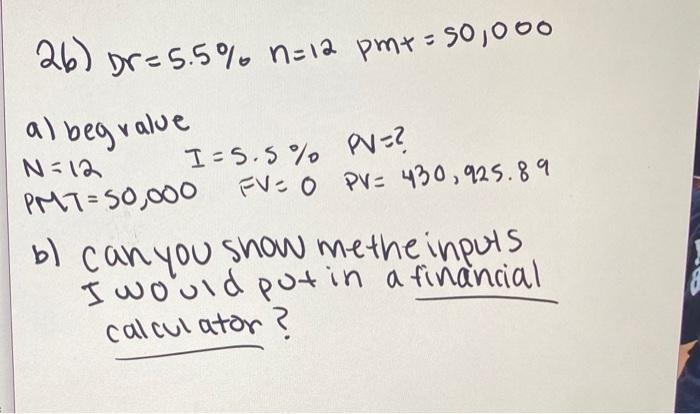 26) Dr=5.5% n=12 pmt=50,000
a) beg value
N=12 I=5.5% PV=?
PMT=50,000 FV=0 PV= 430,925.89
b) can you show me the inputs
I would put in a financial
calculator?